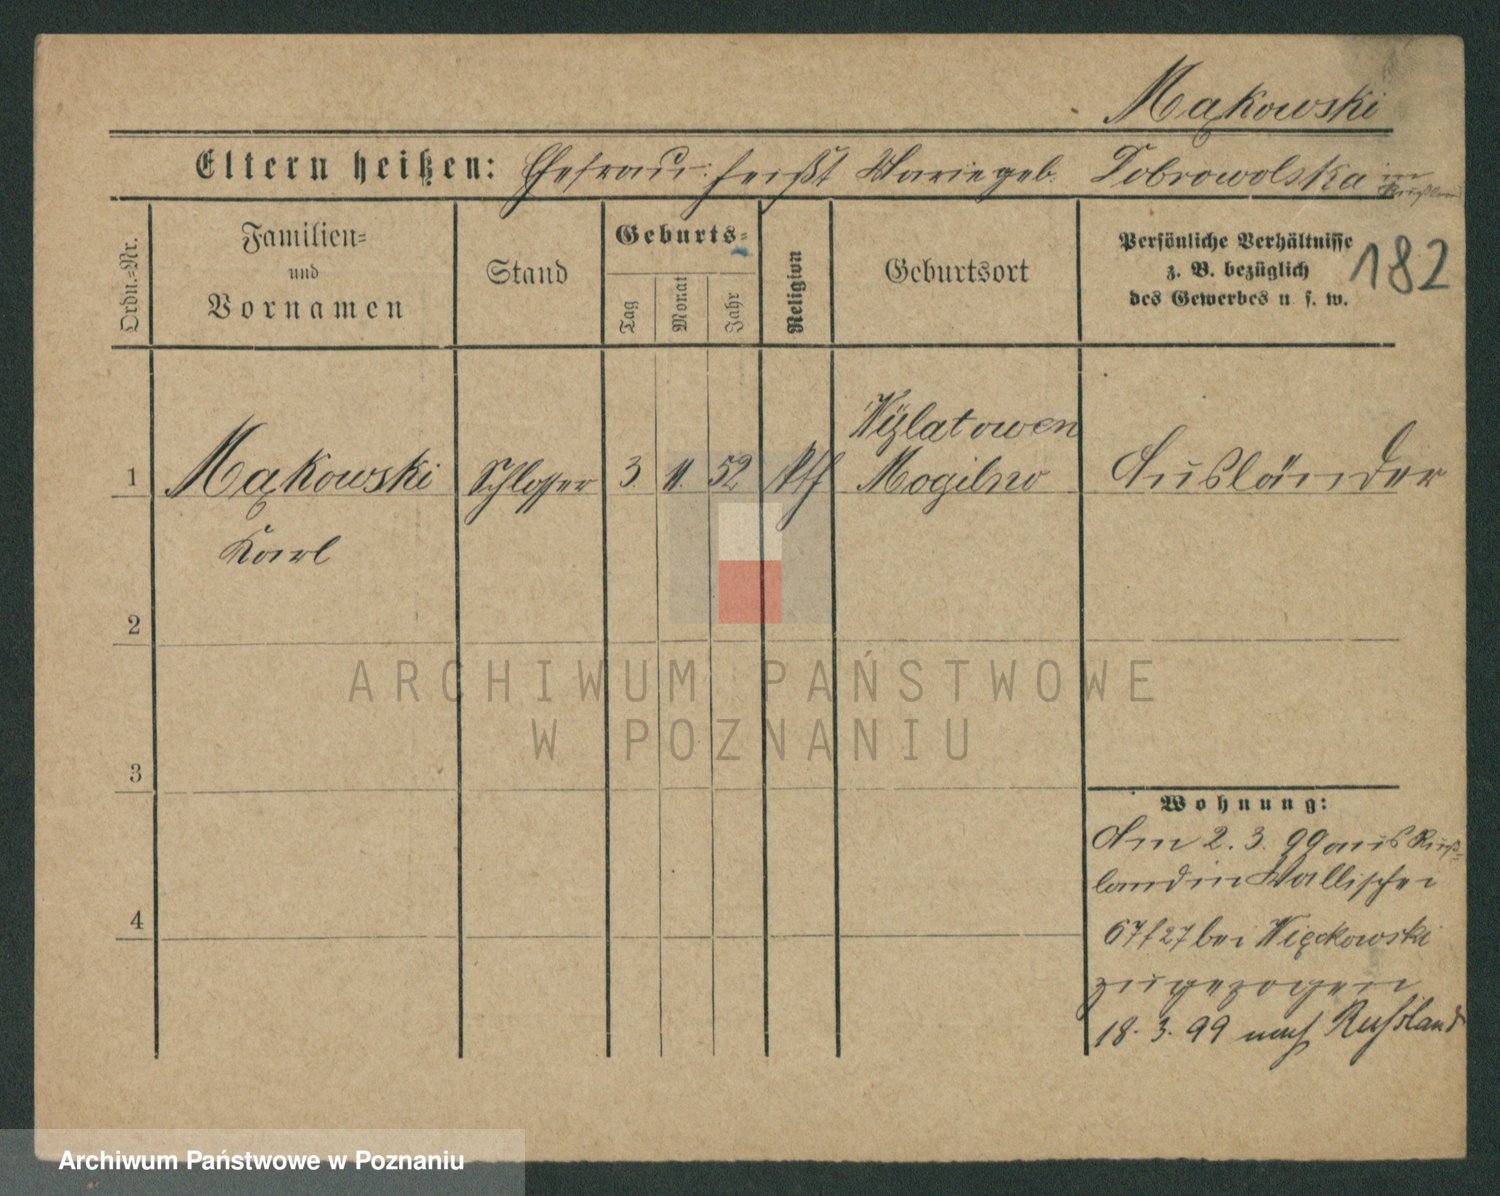 Mąkowski
Eltern heißen: Ehefrau: heißt Marie geb. Dobrowolska in Rußland
Ordn.-Nr.
Familien-
und
Vornamen
Stand
Geburts-
Tag
Monat
Jahr
Religion
Geburtsort
Persönliche Verhältnisse
z. B. bezüglich
des Gewerbes u. s. w.
182
Wÿlatowen
1 Mąkowski Schlosser 3. 11. 52 kth Mogilno Ausländer
Karl
2
3
4
Wohnung:
Am 2. 3. 99 aus Ruß-
land in Wallischei
67/27 bei Więckowski
zugezogen
18. 3. 99 nach Russland
ARCHIWUM PAŃSTWOWE
W POZNANIU
Archiwum Państwowe w Poznaniu